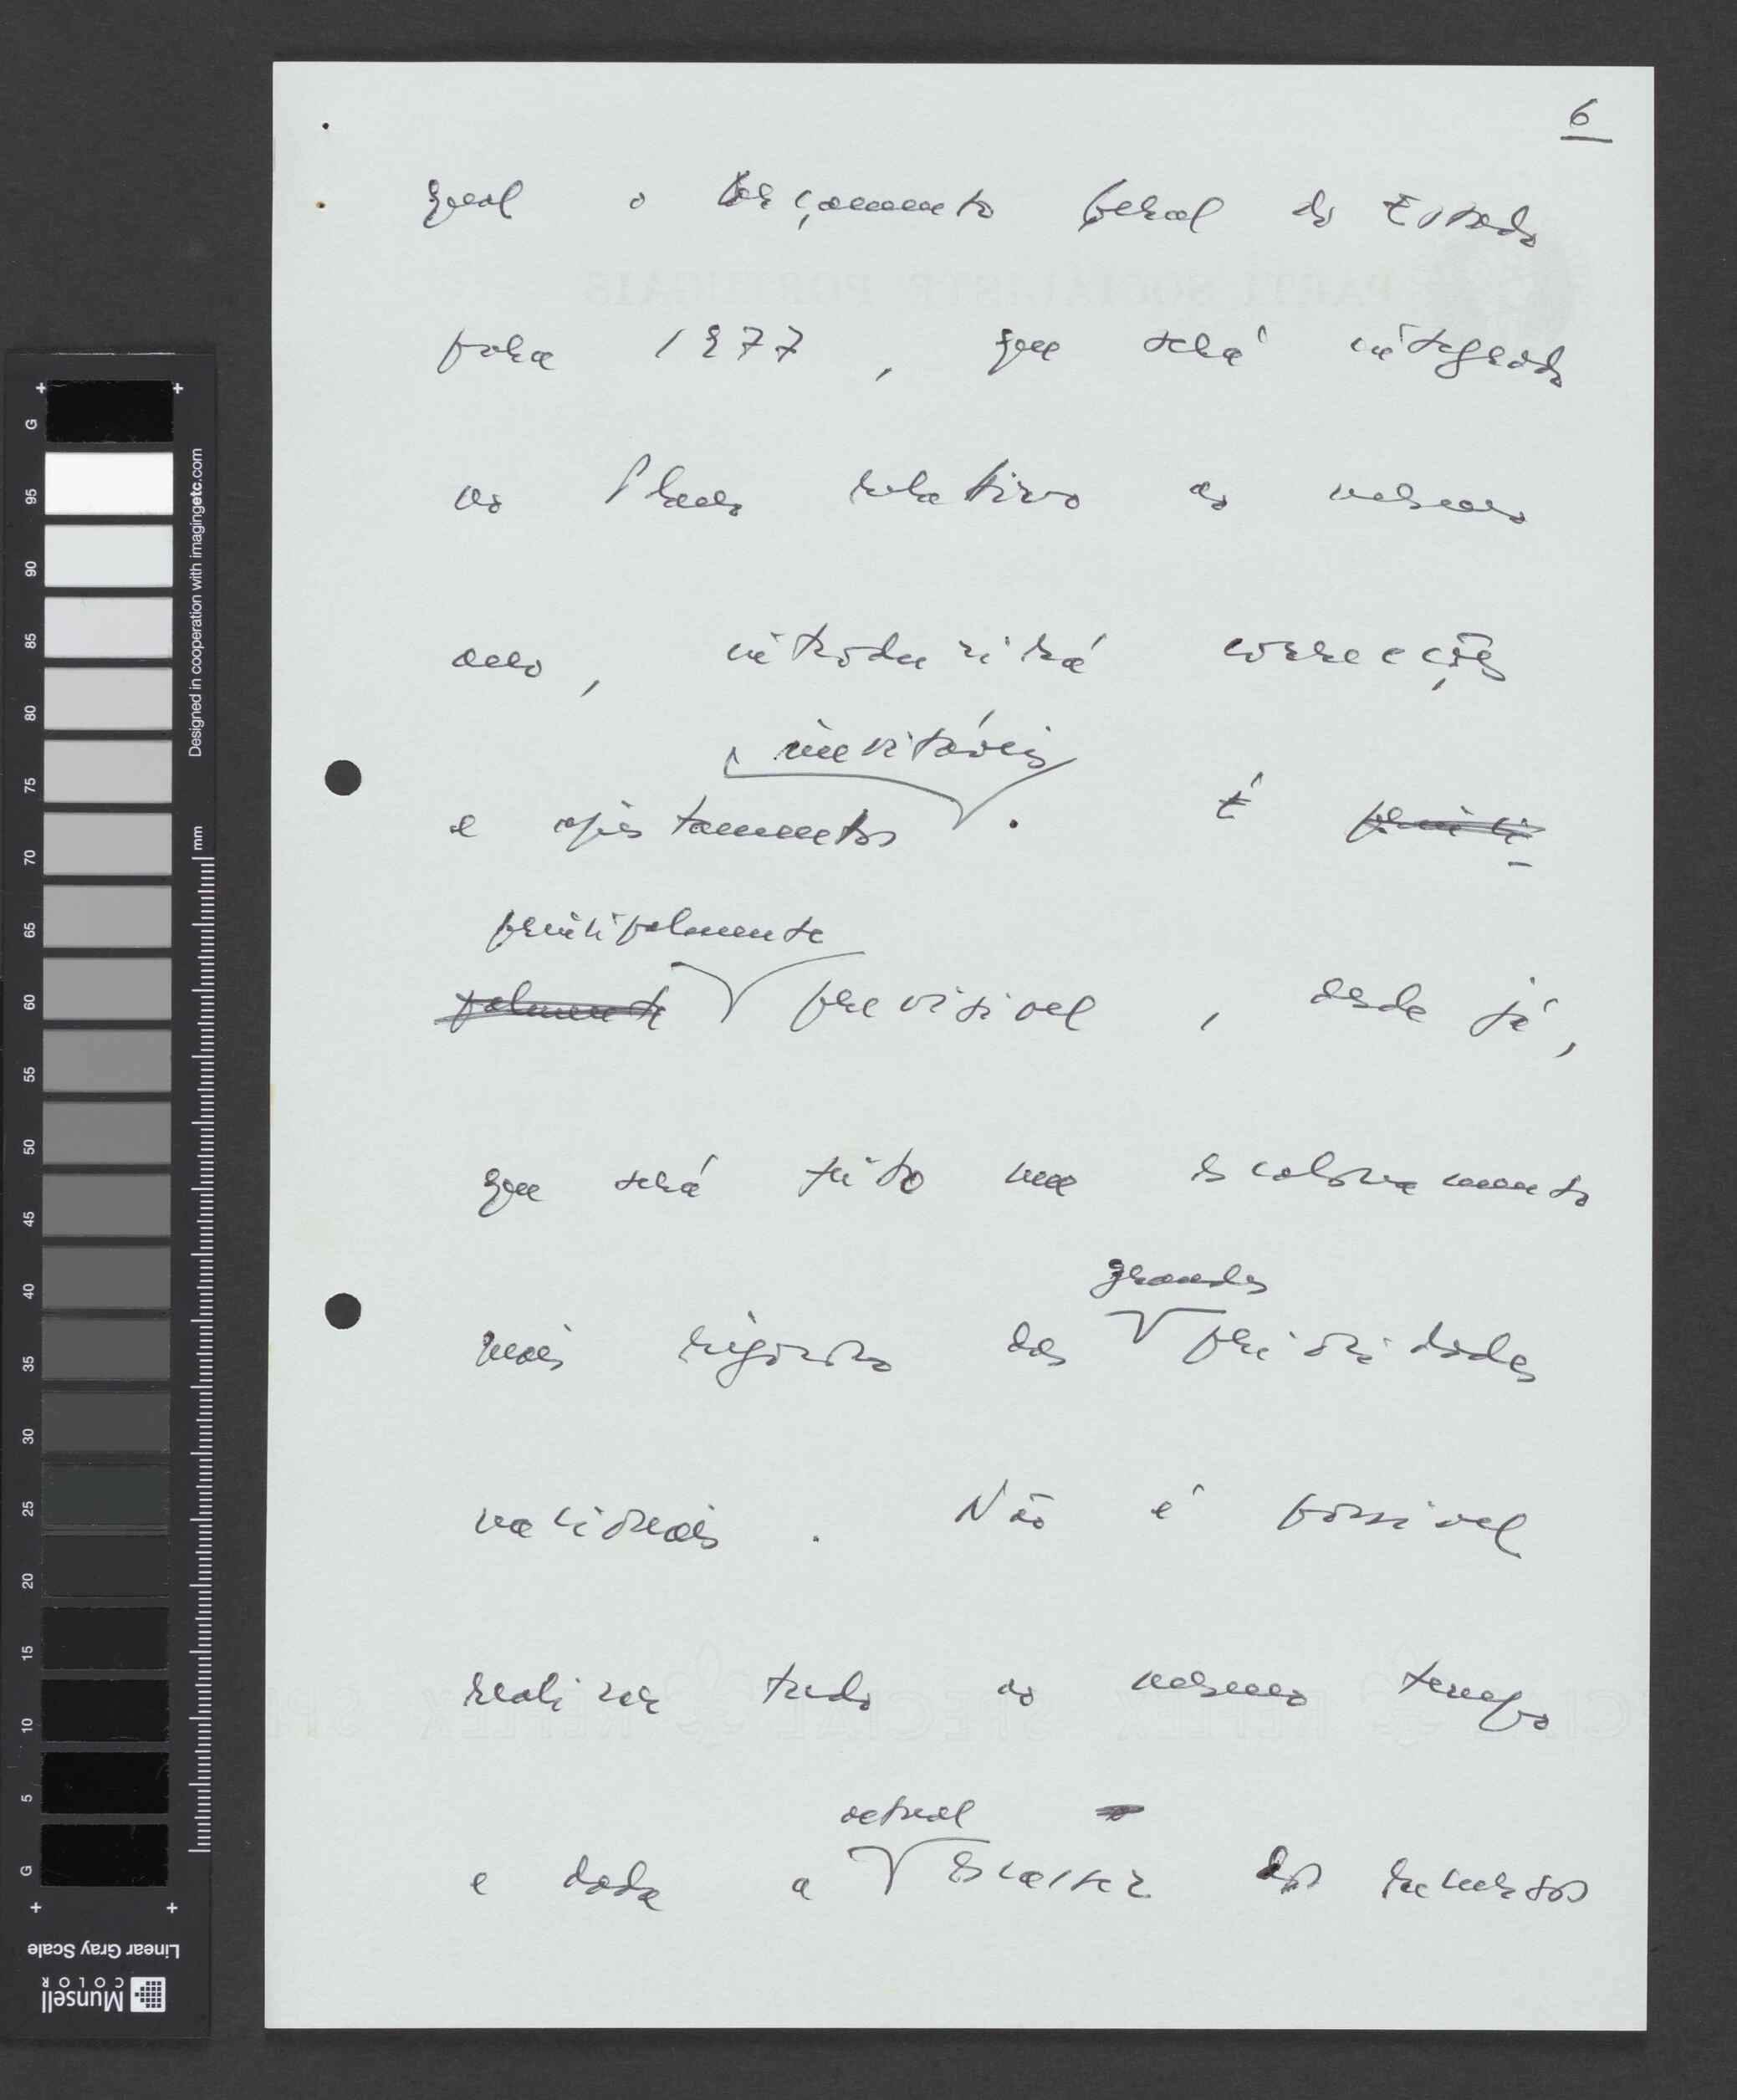 6
qual o Orçamento Geral do Estado
para 1977, que será integrado
no Plano relativo ao mesmo
ano, introduzirá correcções
inevitáveis
e ajustamentos. É princi-
principalmente
palmente previsivel, desde já,
que será feito um escalonamento
mais rigoroso das
grandes
prioridades
nacionais. Não é possivel
realizar tudo ao mesmo tempo
actual
e dada a escassez dos recursos
PARTI SOCIALISTE PORTUGAIS
SPECIAL REFLEX SPECIAL REFLEX
Designed in cooperation with imagingetc.com
mm
G
95
90
85
80
75
70
65
60
55
50
45
40
35
30
25
20
15
10
5
G
Linear Gray Scale
Munsell
COLOR